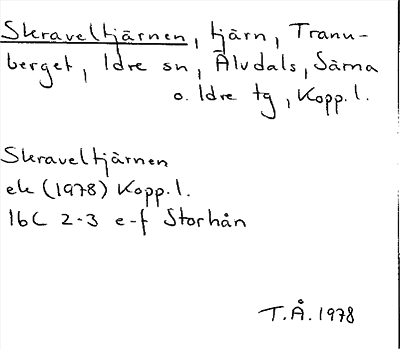 Skraveltjärnen, tjärn, Tranu-
berget, Idre sn, Älvdals, Särna
o. Idre tg, Kopp. l.
Skraveltjärnen
ek (1978) Kopp. l.
16C 2-3 e-f Storhån
T.Å. 1978